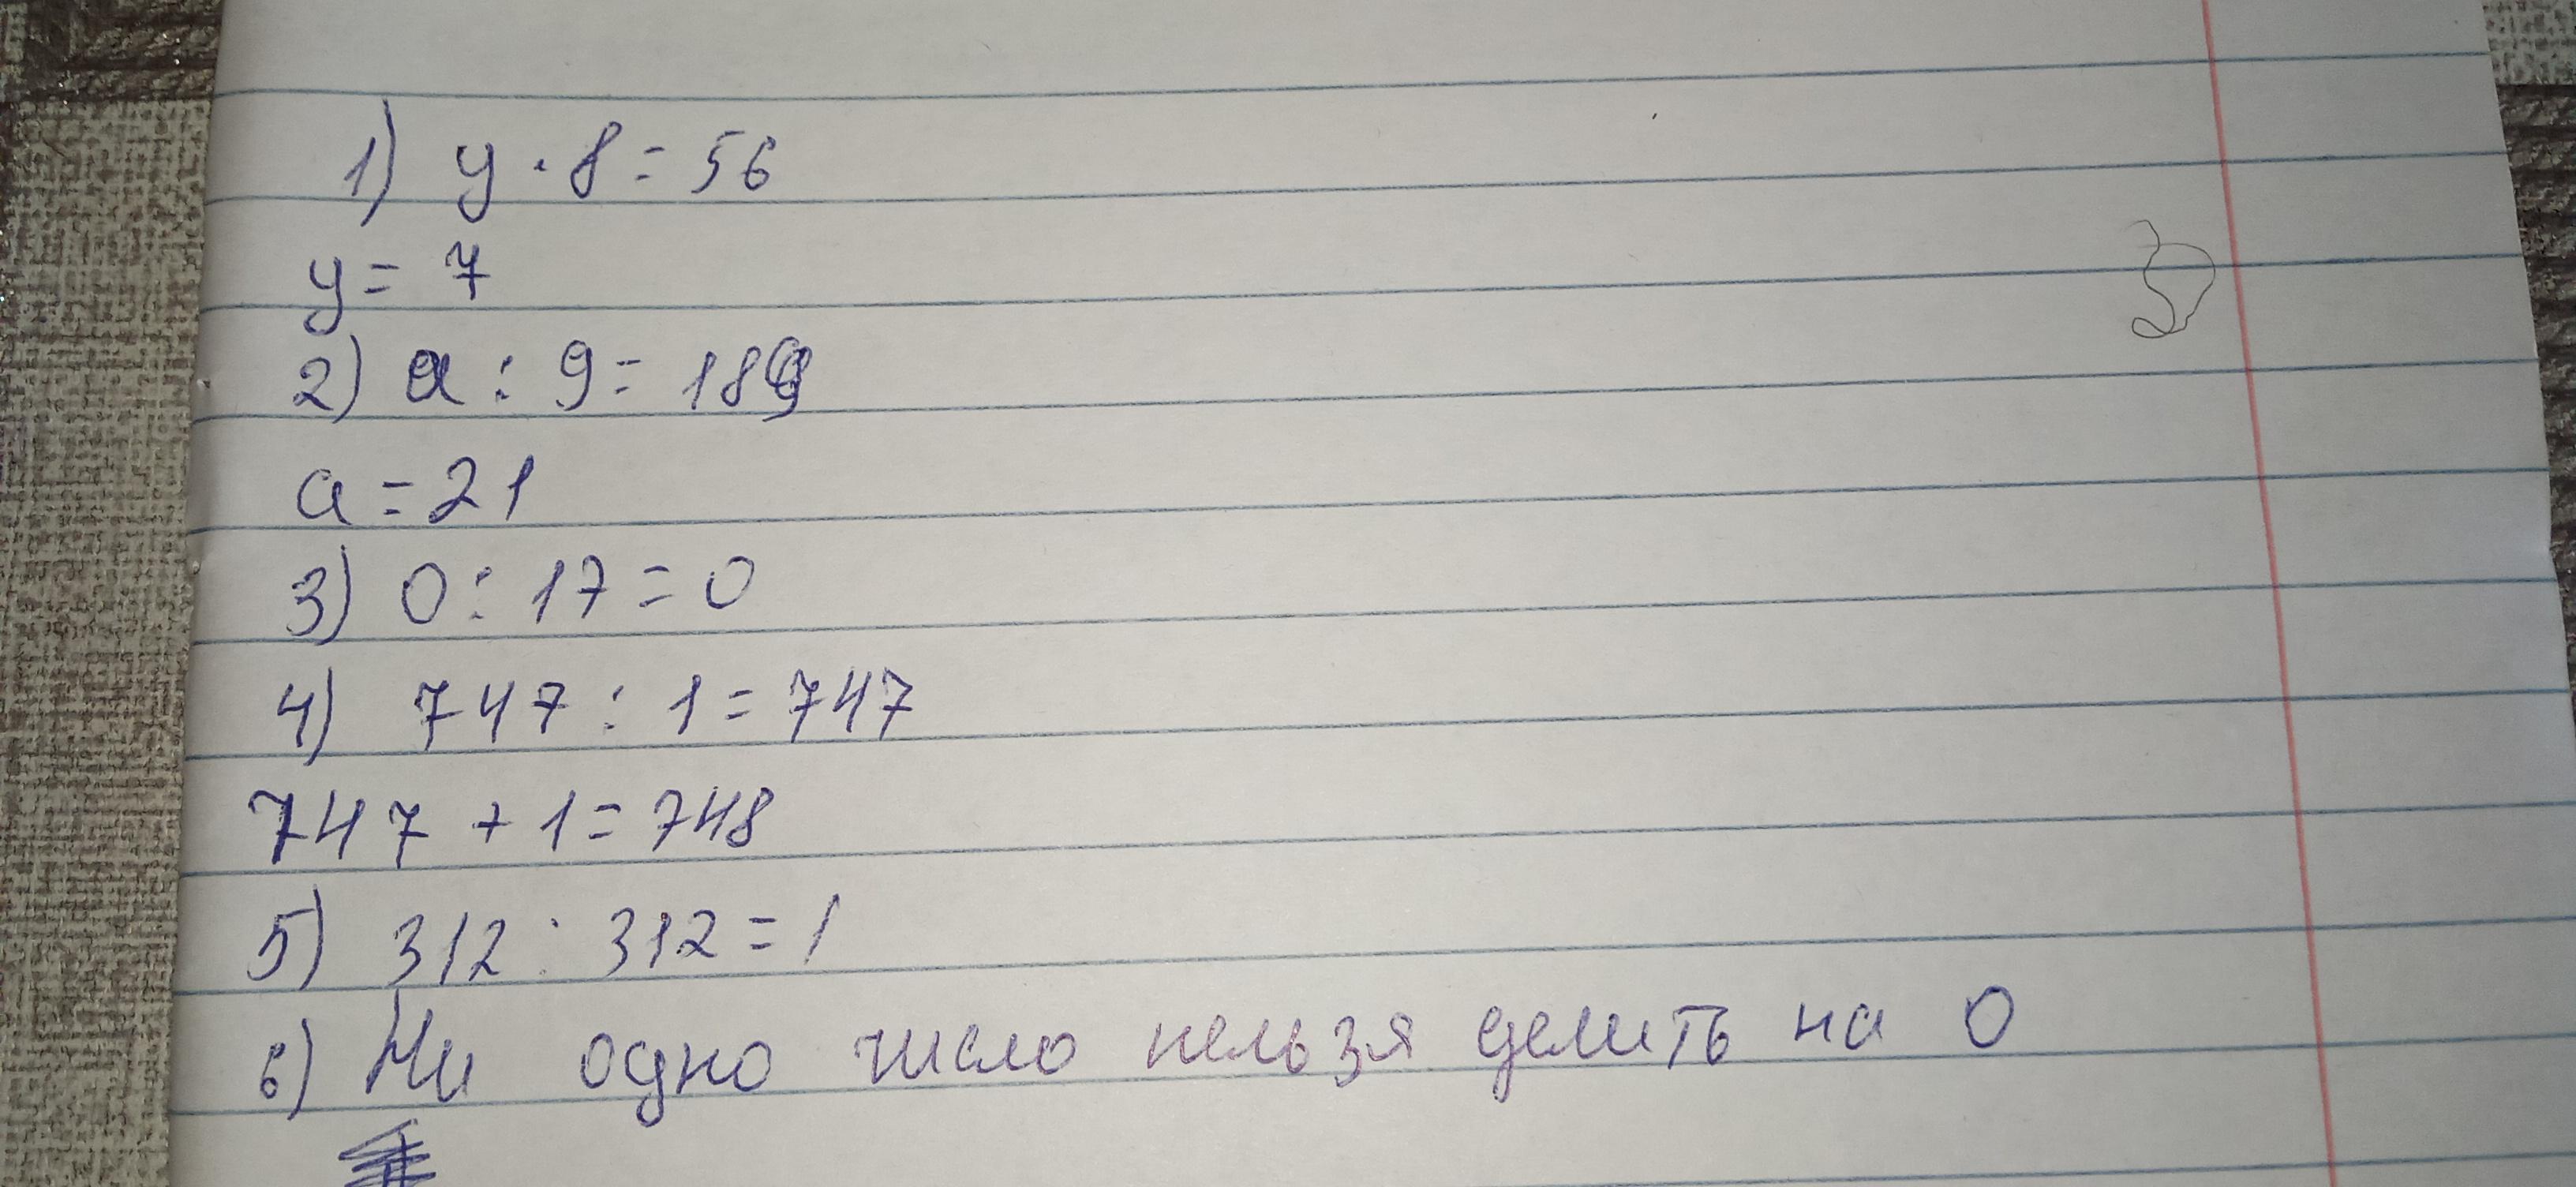 1) у · 8 = 56
у = 7
2) а : 9 = 189
а = 21
3) 0 : 17 = 0
4) 747 : 1 = 747
747 + 1 = 748
5) 312 : 312 = 1
6) Ни одно число нельзя делить на 0